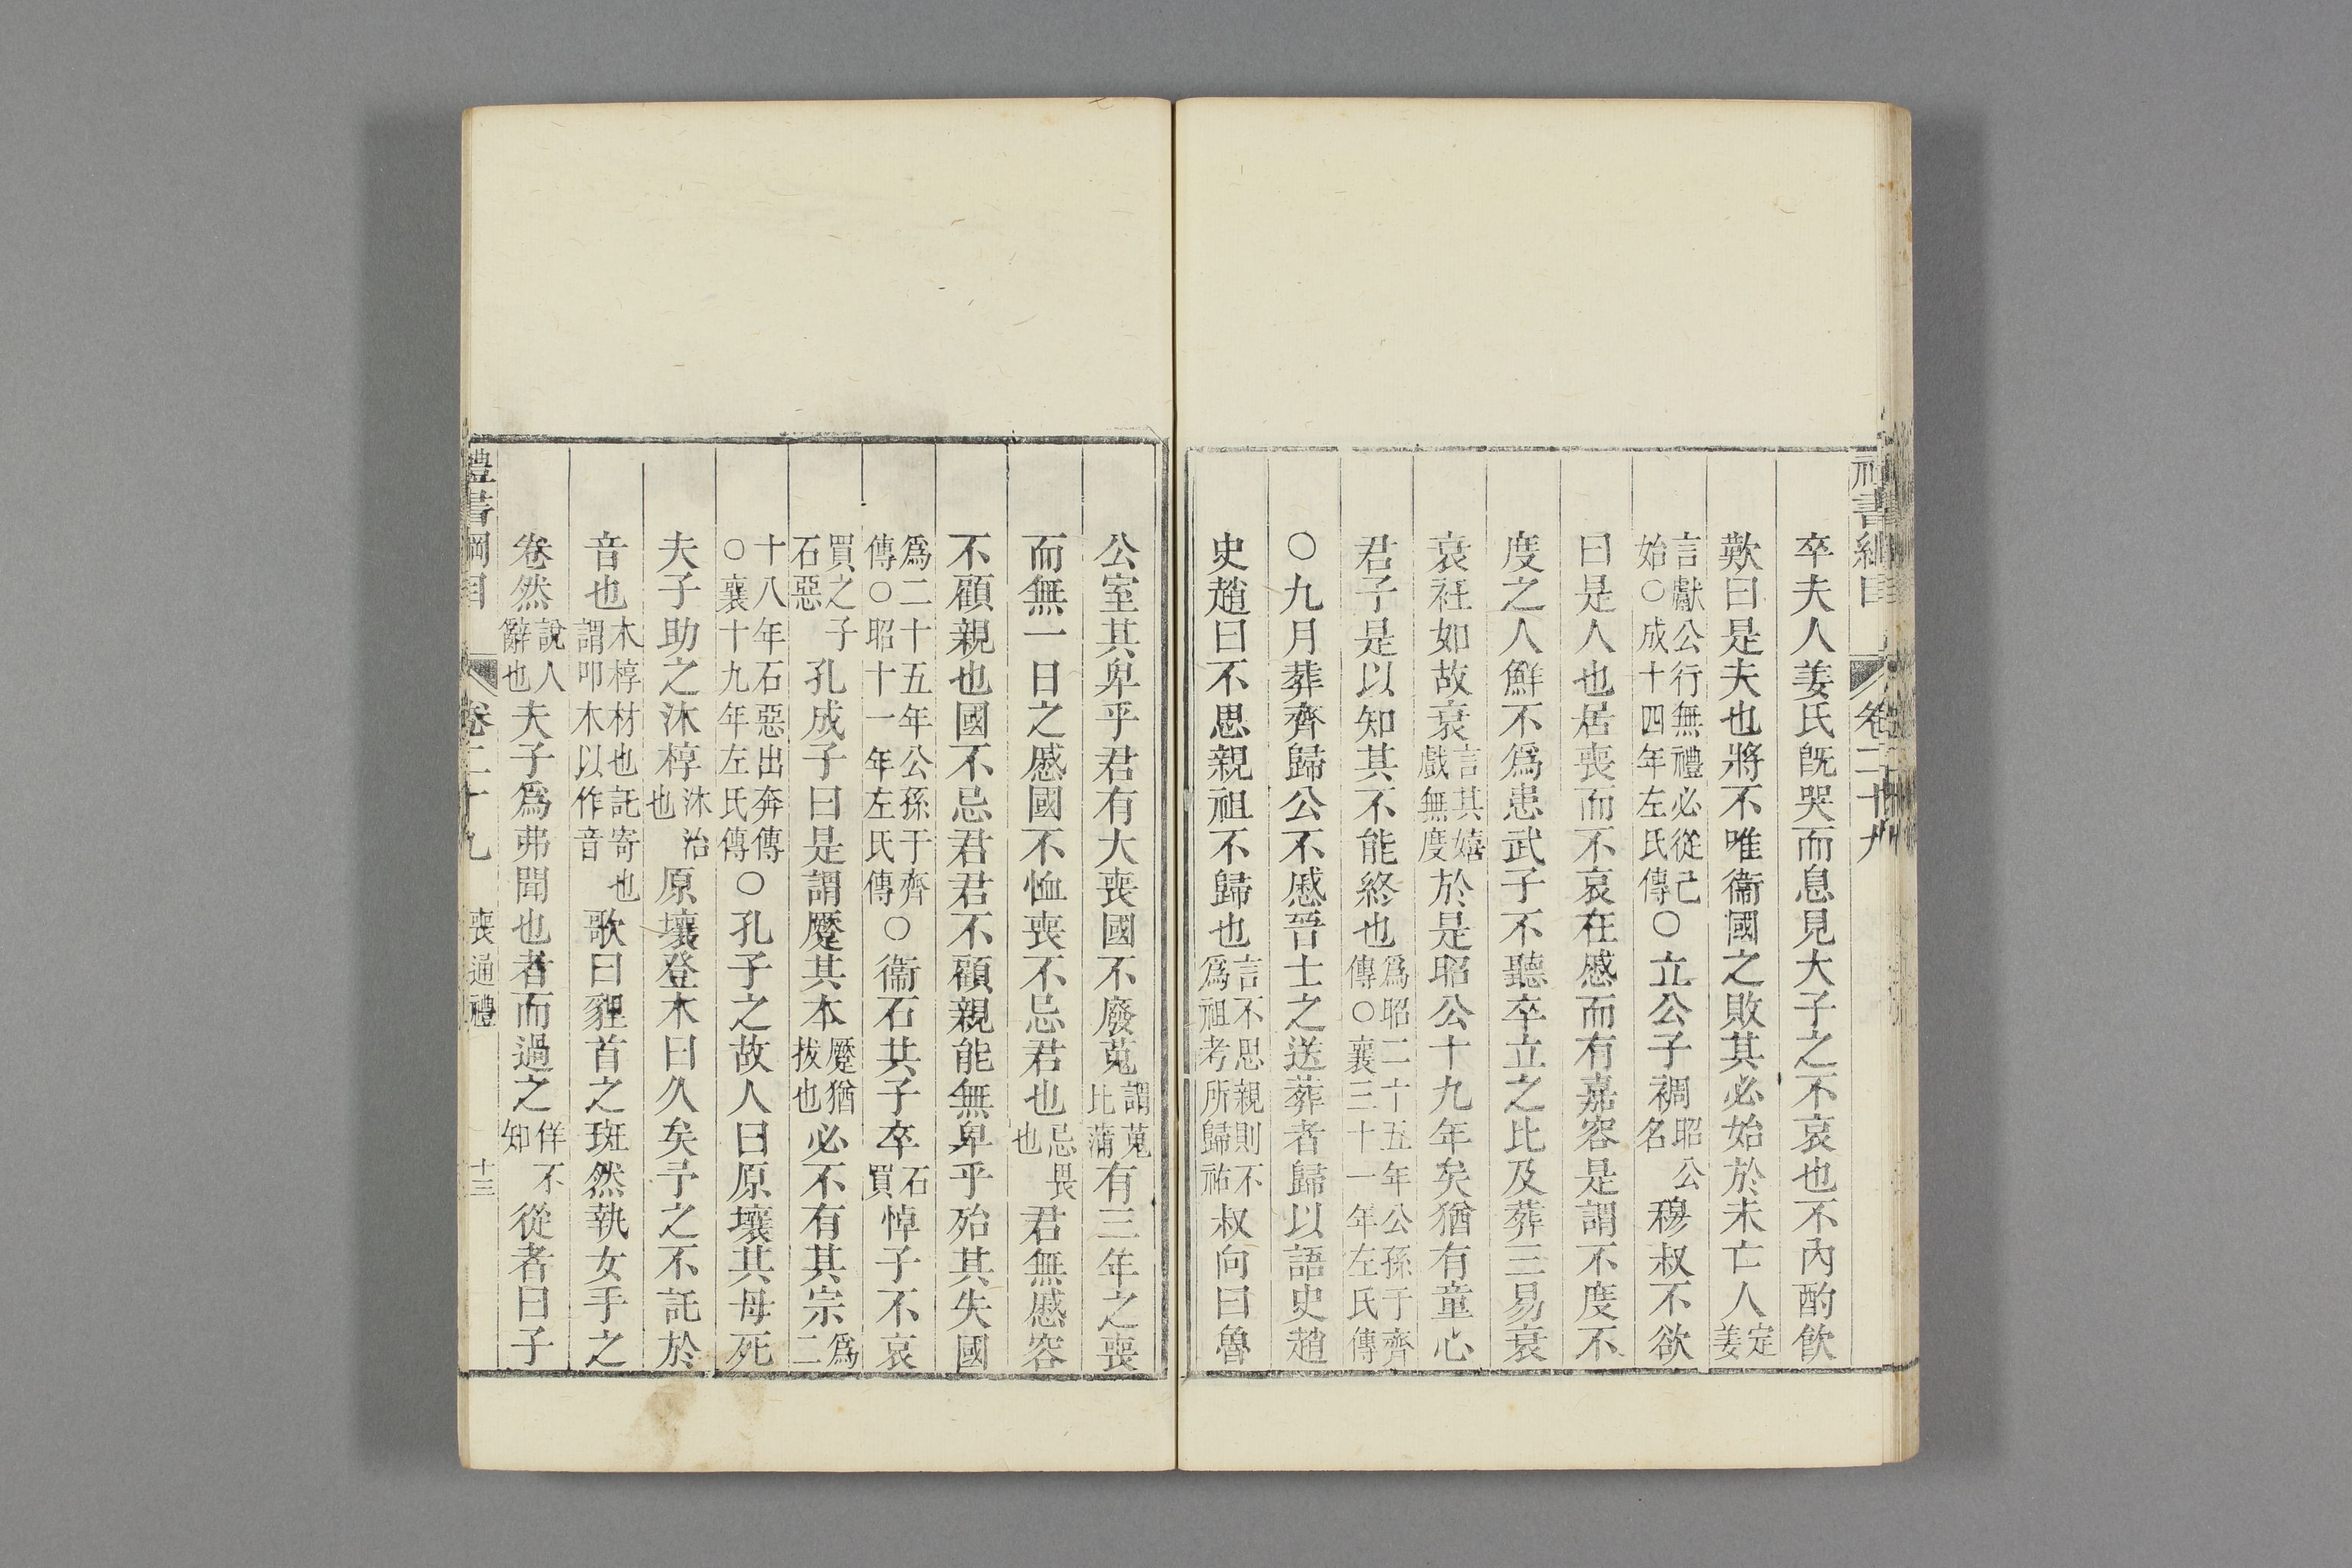 禮書綱目 卷二十九
卒夫人姜氏旣哭而息見大子之不哀也不內酌飮
歎曰是夫也將不唯衞國之敗其必始於未亡人定姜
言獻公行無禮必從己始○成十四年左氏傳○立公子裯昭公名穆叔不欲
曰是人也居喪而不哀在慼而有嘉容是謂不度不
度之人鮮不爲患武子不聽卒立之比及葬三易衰
衰衽如故衰言其嬉戲無度於是昭公十九年矣猶有童心
君子是以知其不能終也爲昭二十五年公孫于齊傳○襄三十一年左氏傳
○九月葬齊歸公不慼晉士之送葬者歸以語史趙
史趙曰不思親祖不歸也言不思親則不爲祖考所歸祐叔向曰魯
公室其卑乎君有大喪國不廢蒐謂蒐比蒲有三年之喪
而無一日之慼國不恤喪不忌君也忌畏也君無慼容
不顧親也國不忌君君不顧親能無卑乎殆其失國
爲二十五年公孫于齊傳○昭十一年左氏傳○衞石共子卒石買悼子不哀
買之子石惡孔成子曰是謂蹷其本蹷猶拔也必不有其宗爲二
十八年石惡出奔傳○襄十九年左氏傳○孔子之故人曰原壤其母死
夫子助之沐椁沐治也原壤登木曰久矣予之不託於
音也木椁材也託寄也謂叩木以作音歌曰貍首之斑然執女手之
卷然說人辭也夫子爲弗聞也者而過之佯不知從者曰子
禮書綱目 卷二十九 喪通禮 十三